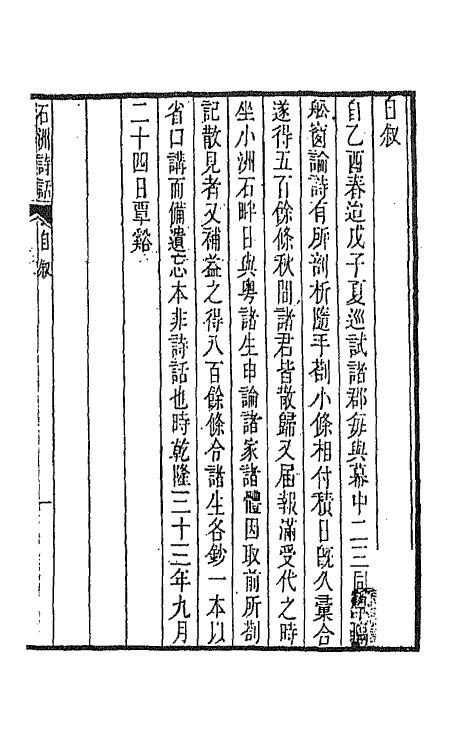 自敘
自乙酉春迨戊子夏巡試諸郡每與幕中二三同
舩窗論詩有所剖析隨手劄小條相付積日旣久彙合
遂得五百餘條秋間諸君皆散歸又届報滿受代之時
坐小洲石畔日與粤諸生申論諸家諸體因取前所劄
記散見者又補益之得八百餘條令諸生各鈔一本以
省口講而備遺忘本非詩話也時乾隆三十三年九月
二十四日覃谿
石洲詩話 自敘 一